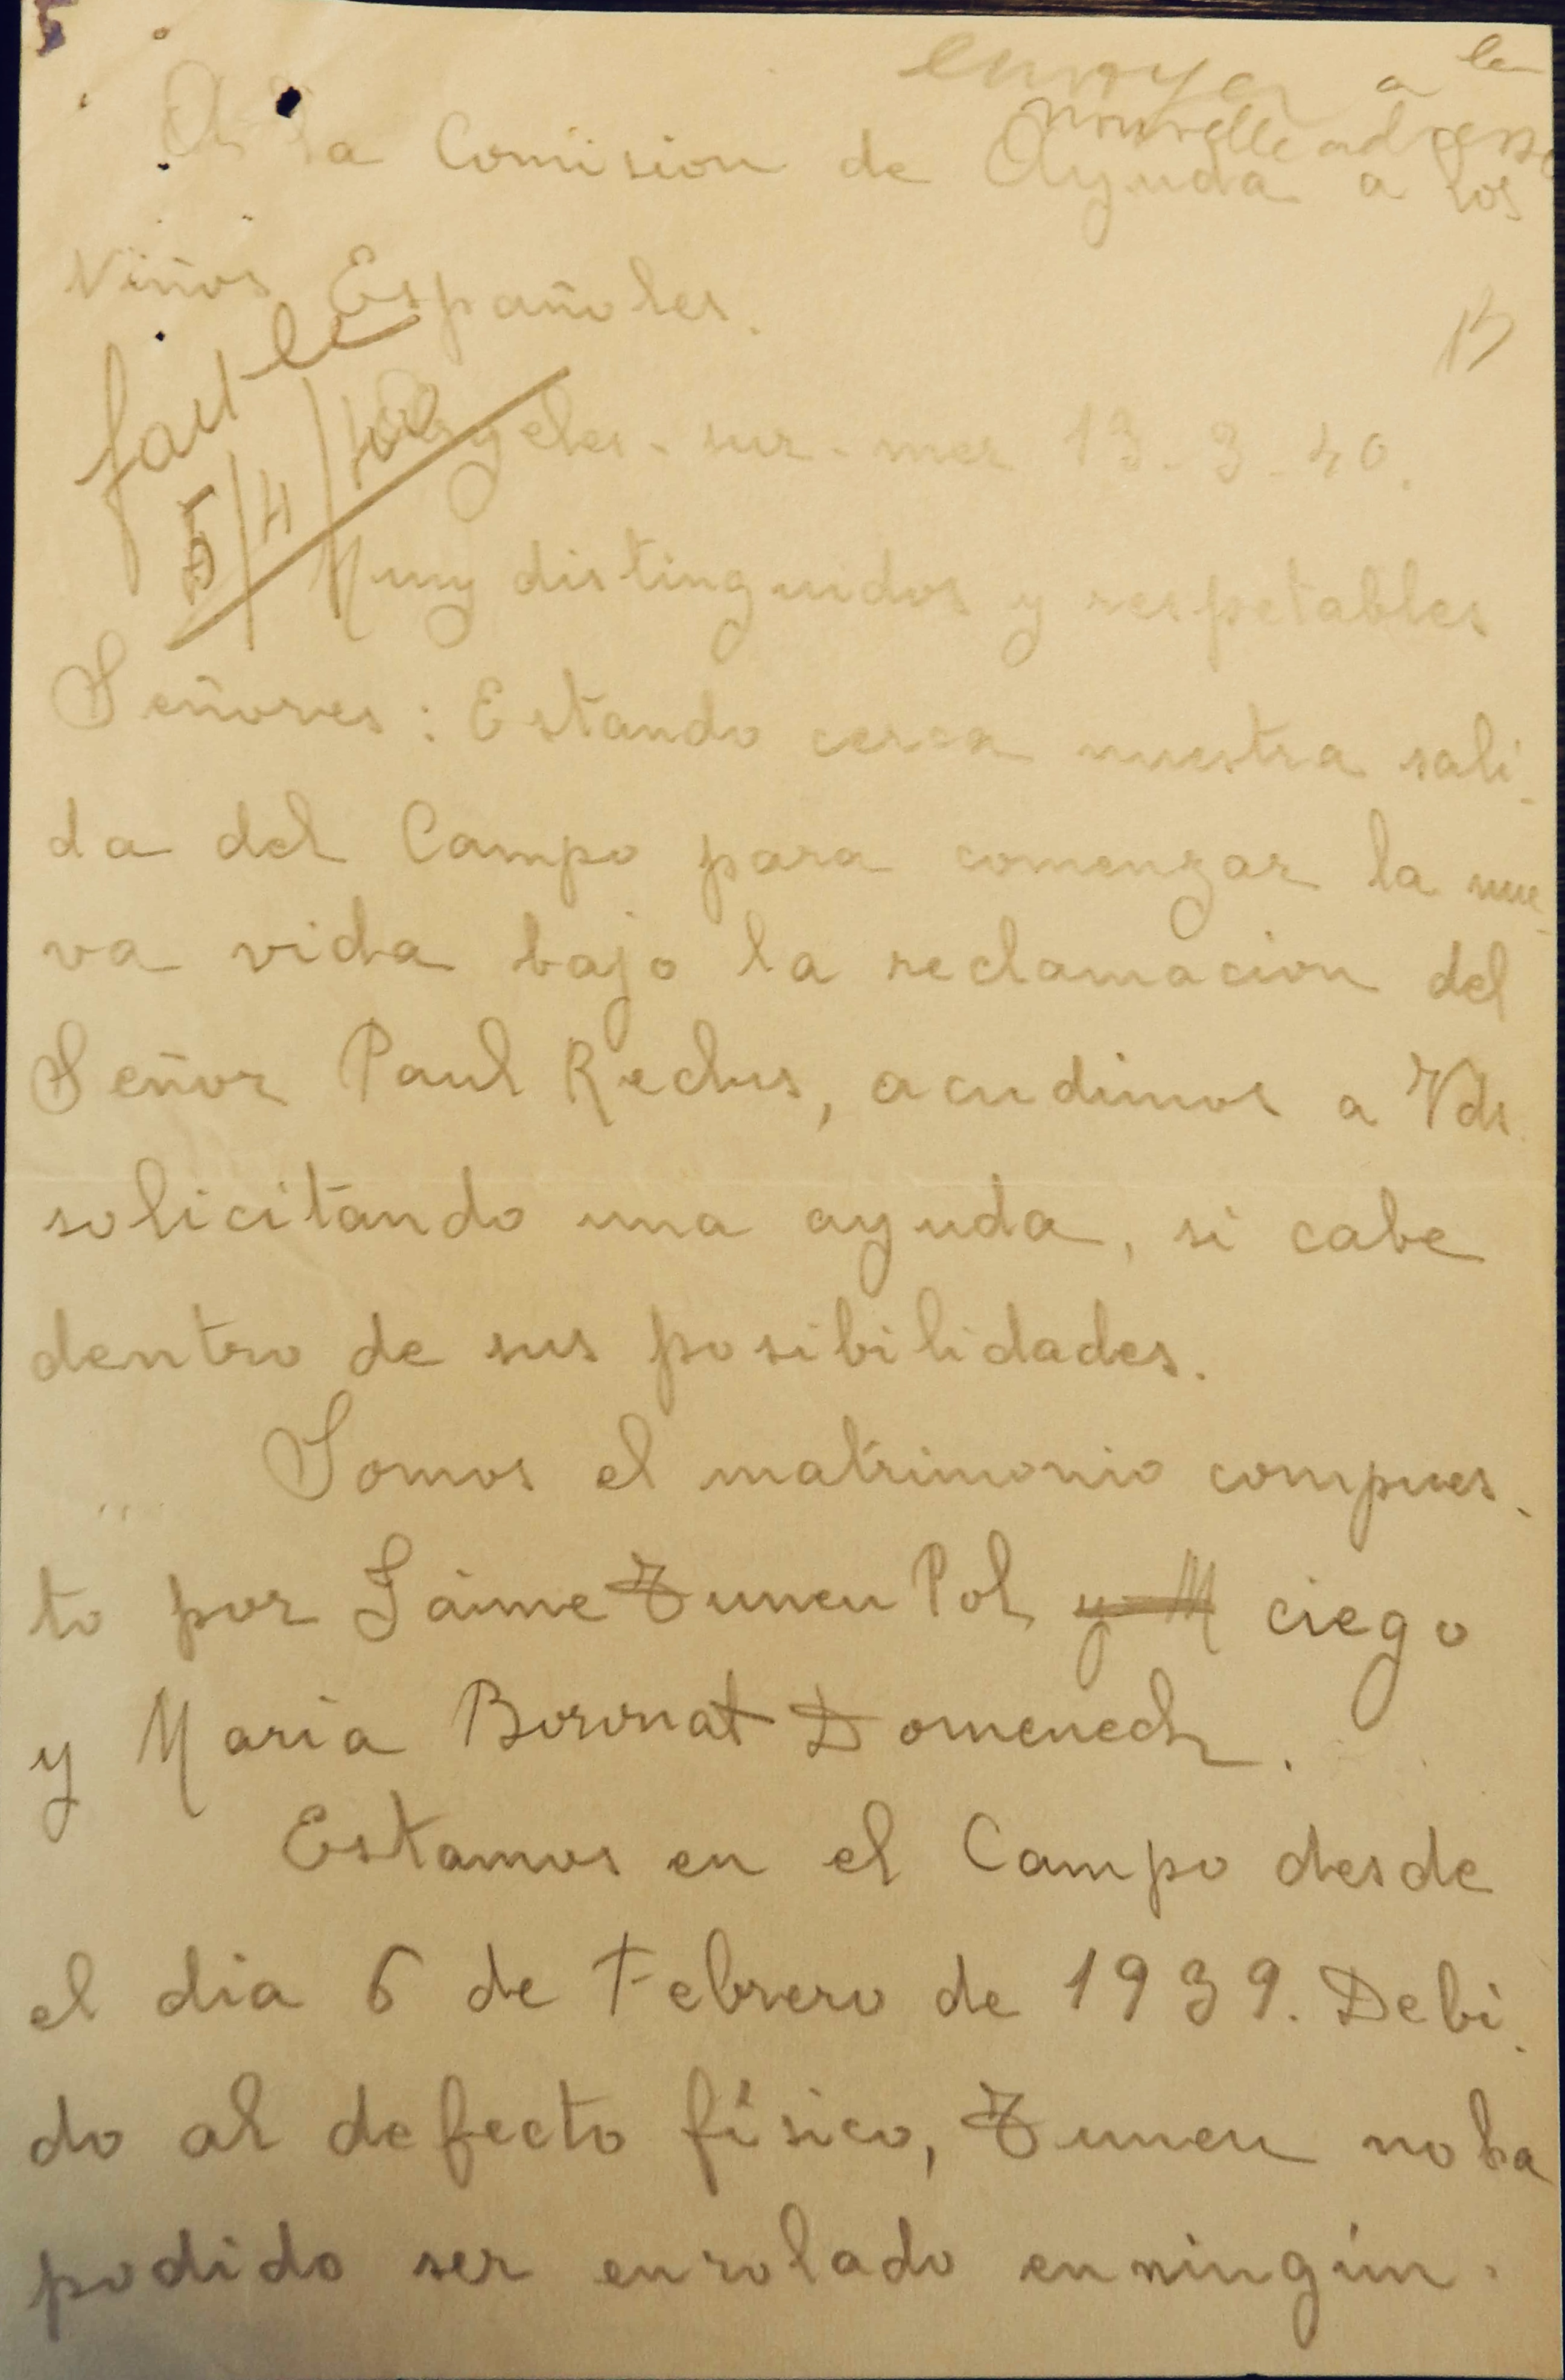 envoyer a la
nouvelle adresse
A la Comision de Ayuda a los
Niños Españoles.
B
fait le
5/4/40
Argeles-sur-mer 13-3-40.
Muy distinguidos y respetables
Señores: Estando cerca nuestra sali-
da del Campo para comenzar la nue-
va vida bajo la reclamacion del
Señor Paul Reclus, acudimos a Vds.
solicitando una ayuda, si cabe
dentro de sus posibilidades.
Somos el matrimonio compues-
to por Jaime Tuneu Pol y M ciego
y Maria Boronat Domenech.
Estamos en el Campo desde
el dia 6 de Febrero de 1939. Debi-
do al defecto físico, Tuneu no ha
podido ser enrolado en ningún